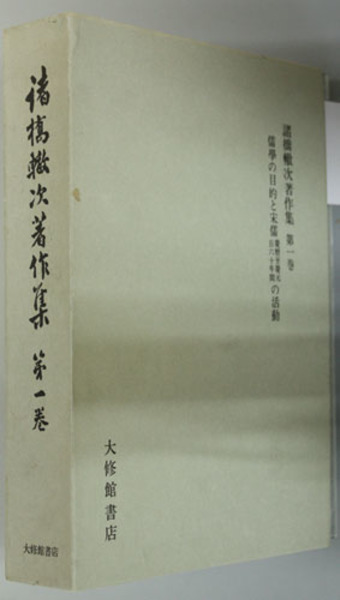 諸橋轍次著作集 第一巻
大修館書店
諸橋轍次著作集 第一巻
儒學の目的と宋儒 慶暦至慶元百六十年間 の活動
大修館書店